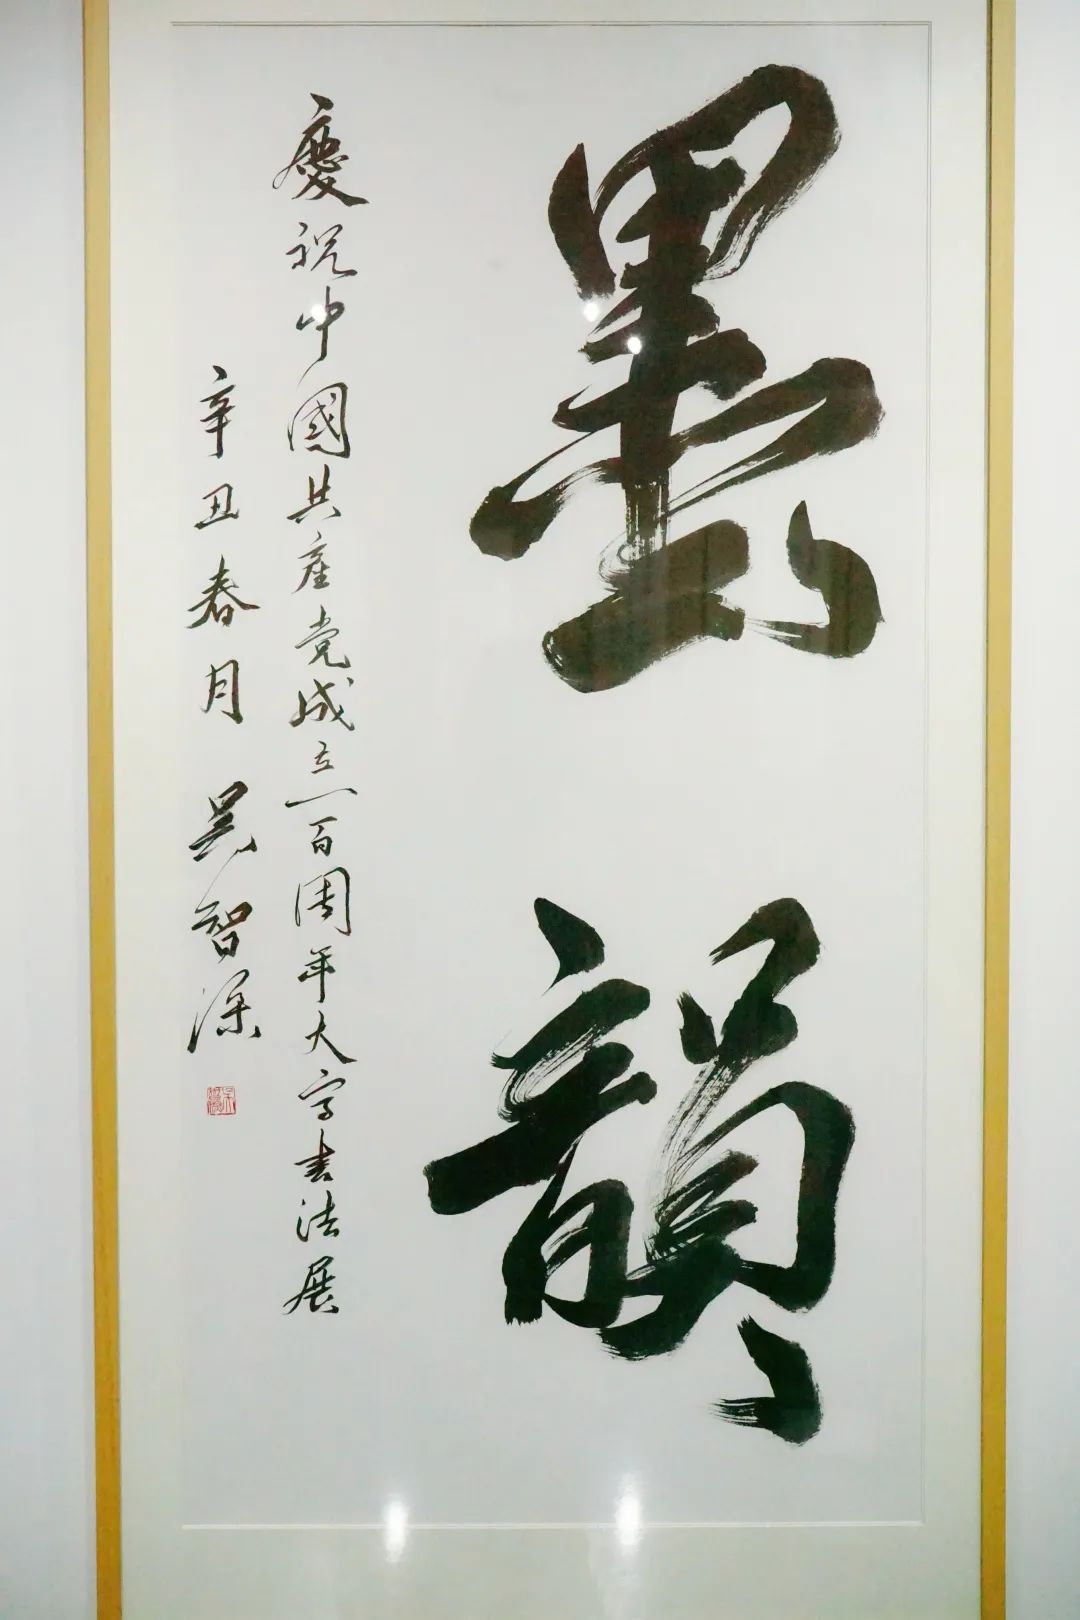 墨韻
慶祝中國共産党成立一百周年大字書法展
辛丑春月 吴智深